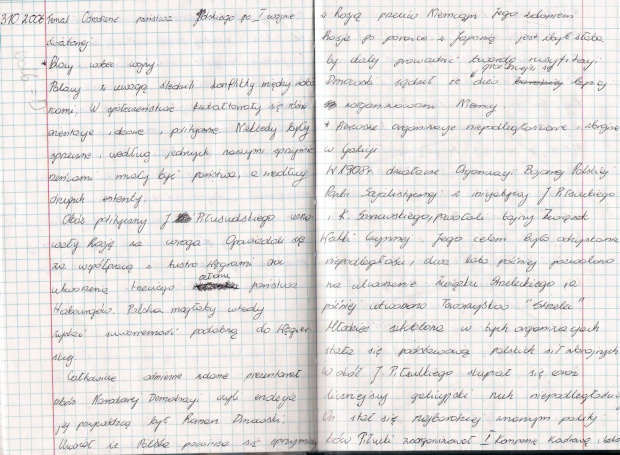 3.10.2006 Temat Odrodzenie państwa polskiego po I wojnie
światowej
* Polacy wobec wojny
Polacy z uwagą śledzili konfilkty między zabo
rcami. W społeczeństwie kształtowały się różne
orientacje, ideowe i polityczne. Niekiedy były
sprzeczne, według jednych naszymi sprzymie
rzeńcami miały być państwa, a według
drugich ententy.
Obóz polityczny J. Piłsudskiego uzna
wały Rosję za wroga. Opowiadali się
za współpracą z Austro Węgrami oraz
utworzenia trzeciego członu państwa
Habsburgów. Polska miałaby wtedy
suwerenność podobną do Węgier
skiej.
Całkowicie odmienne zdanie prezentował
obóz Narodowej Demokracji czyli endecja
jej przywódcą był Roman Dmowski.
Uważał że Polska powinna się sprzymie
z Rosją przeciw Niemcom. Jego zdaniem
Rosja po porażce z Japonią jest zbyt słaba
by dalej prowadzić twardą rusyfikację.
Dmowski sądził że
zorganizowani Niemcy
* Pierwsze organizacje niepodległościowe i zbrojne
w Galicji
W 1908r. działacze Organizacji Bojowej Polskiej
Partii Socjalistycznej z inicjatywy J. Piłsudskiego
i K. Sosnkowskiego, powołali tajny Związek
Walki Czynnej. Jego celem było odzyskanie
niepodległości, dwa lata później pozwolono
na utworzenie Związku Strzeleckiego i
później utworzono Towarzystwo "Strzelec"
Młodzież szkolona w tych organizacjach
stała się podstawową polskich sił zbrojnych.
Wokół J. Piłsudskiego skupiał się coraz
liczniejszy galicyjski ruch niepodległościo
On stał się najbardziej znanym polity
ków Piłsudski zorganizował I kompanię kadrową,